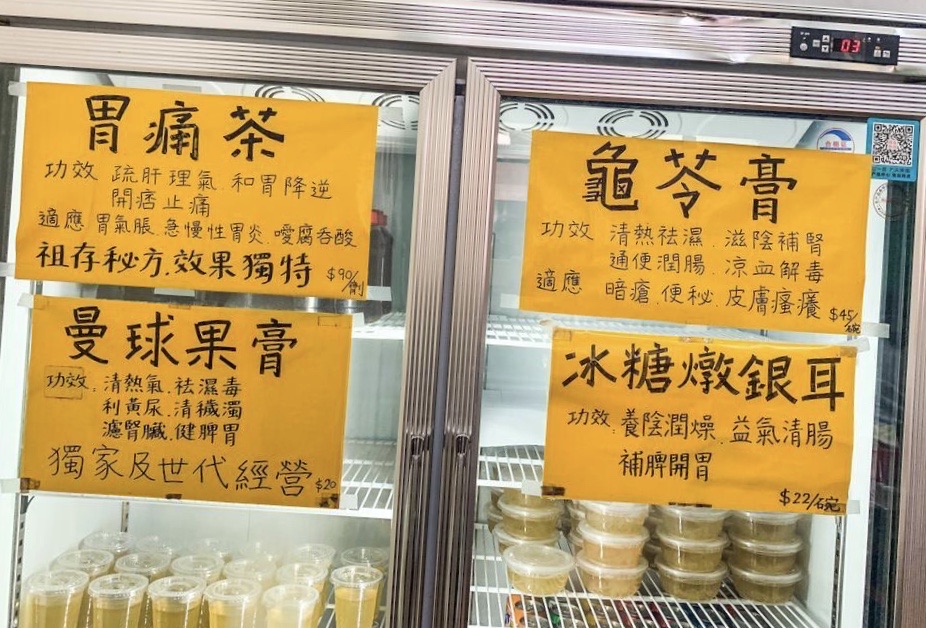 03
胃痛茶
功效 疏肝理氣 和胃降逆
開痞止痛
適應 胃氣脹.急慢性胃炎.噯腐吞酸
祖存秘方.效果獨特 $90/劑
曼球果膏
功效.清熱氣.祛濕毒
利黃尿.清穢濁
濾腎臟.健脾胃
獨家及世代經營 $20
龜苓膏
功效 清熱祛濕.滋陰補腎
通便潤腸.涼血解毒
適應 暗瘡.便秘.皮膚瘙癢 $45/碗
冰糖燉銀耳
功效.養陰潤燥.益氣清腸
補脾開胃
$22/碗